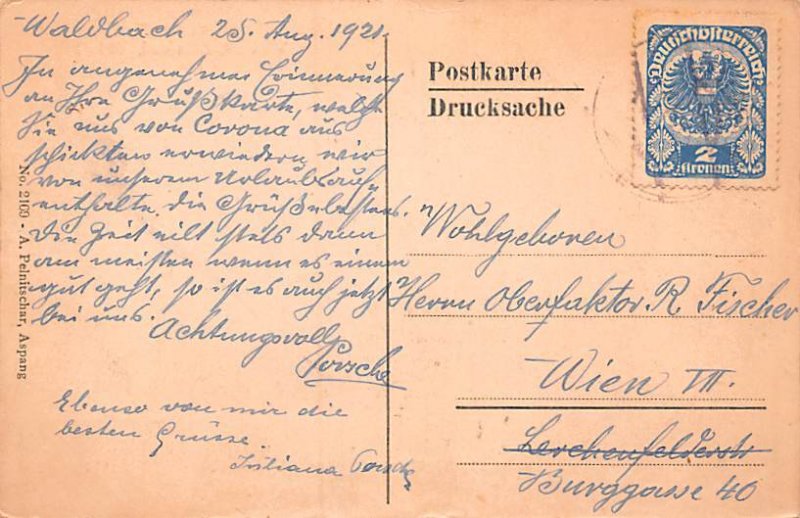 Waldbach 25. Aug. 1921.
In angenehmer Erinnerung
an Ihre Grußkarte, welche
Sie uns von Corona aus
schickten erwiedern wir
von unserem Urlaubsauf-
enthalte die Grüße bestens.
Die Zeit eilt stets dann
am meisten wenn es einem
gut geht, so ist es auch jetzt
bei uns.
Achtungsvoll
Porsche
Ebenso von mir die
besten Grüsse
Juliana Porsche
No. 2160 - A. Pelnitschar, Aspang
Postkarte
Drucksache
Deutschösterreich
2
Kronen
Wohlgeboren
Herrn Oberfaktor R. Fischer
Wien VII.
Lerchenfelderstr
Burggasse 40